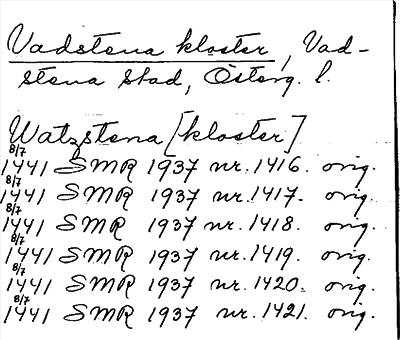 Vadstena kloster, Vad-
stena stad, Österg. l.
Watzstena [kloster]
8/7 1441 SMR 1937 nr. 1416. orig.
8/7 1441 SMR 1937 nr. 1417. orig.
8/7 1441 SMR 1937 nr. 1418. orig.
8/7 1441 SMR 1937 nr. 1419. orig.
8/7 1441 SMR 1937 nr. 1420. orig.
8/7 1441 SMR 1937 nr. 1421. orig.